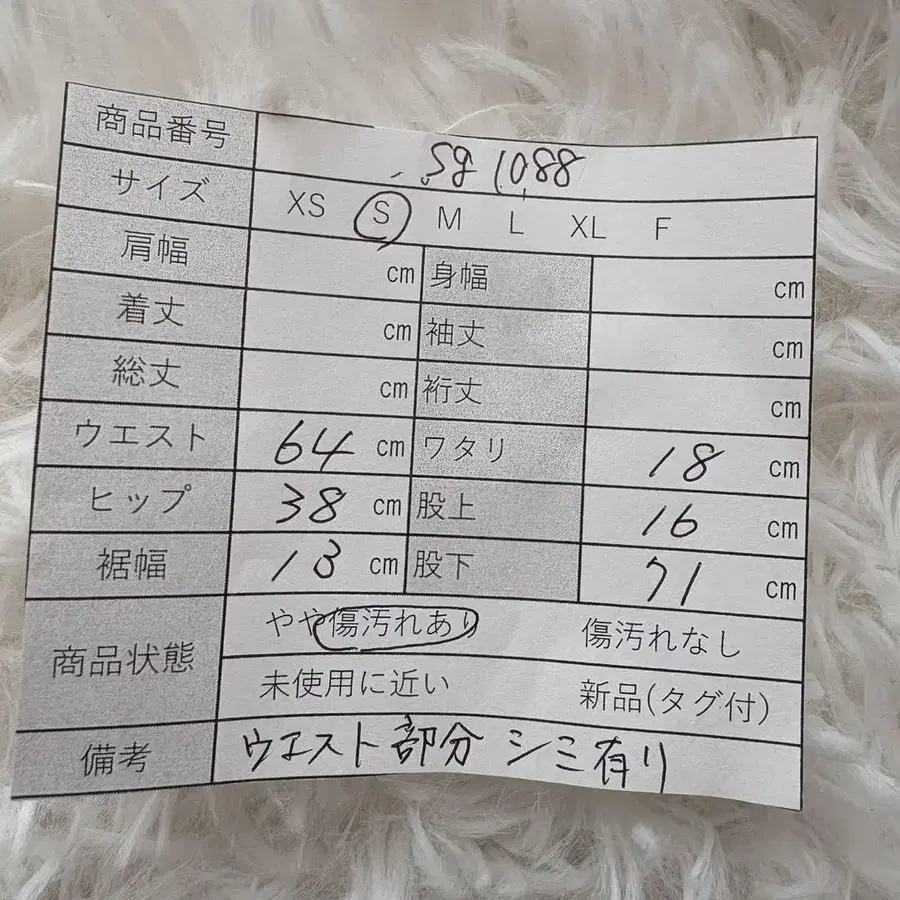 商品番号 Sg 1088
サイズ XS S M L XL F
肩幅 cm 身幅 cm
着丈 cm 袖丈 cm
総丈 cm 裄丈 cm
ウエスト 64 cm ワタリ 18 cm
ヒップ 38 cm 股上 16 cm
裾幅 13 cm 股下 71 cm
商品状態 やや傷汚れあり 傷汚れなし
未使用に近い 新品(タグ付)
備考 ウエスト部分 シミ有り